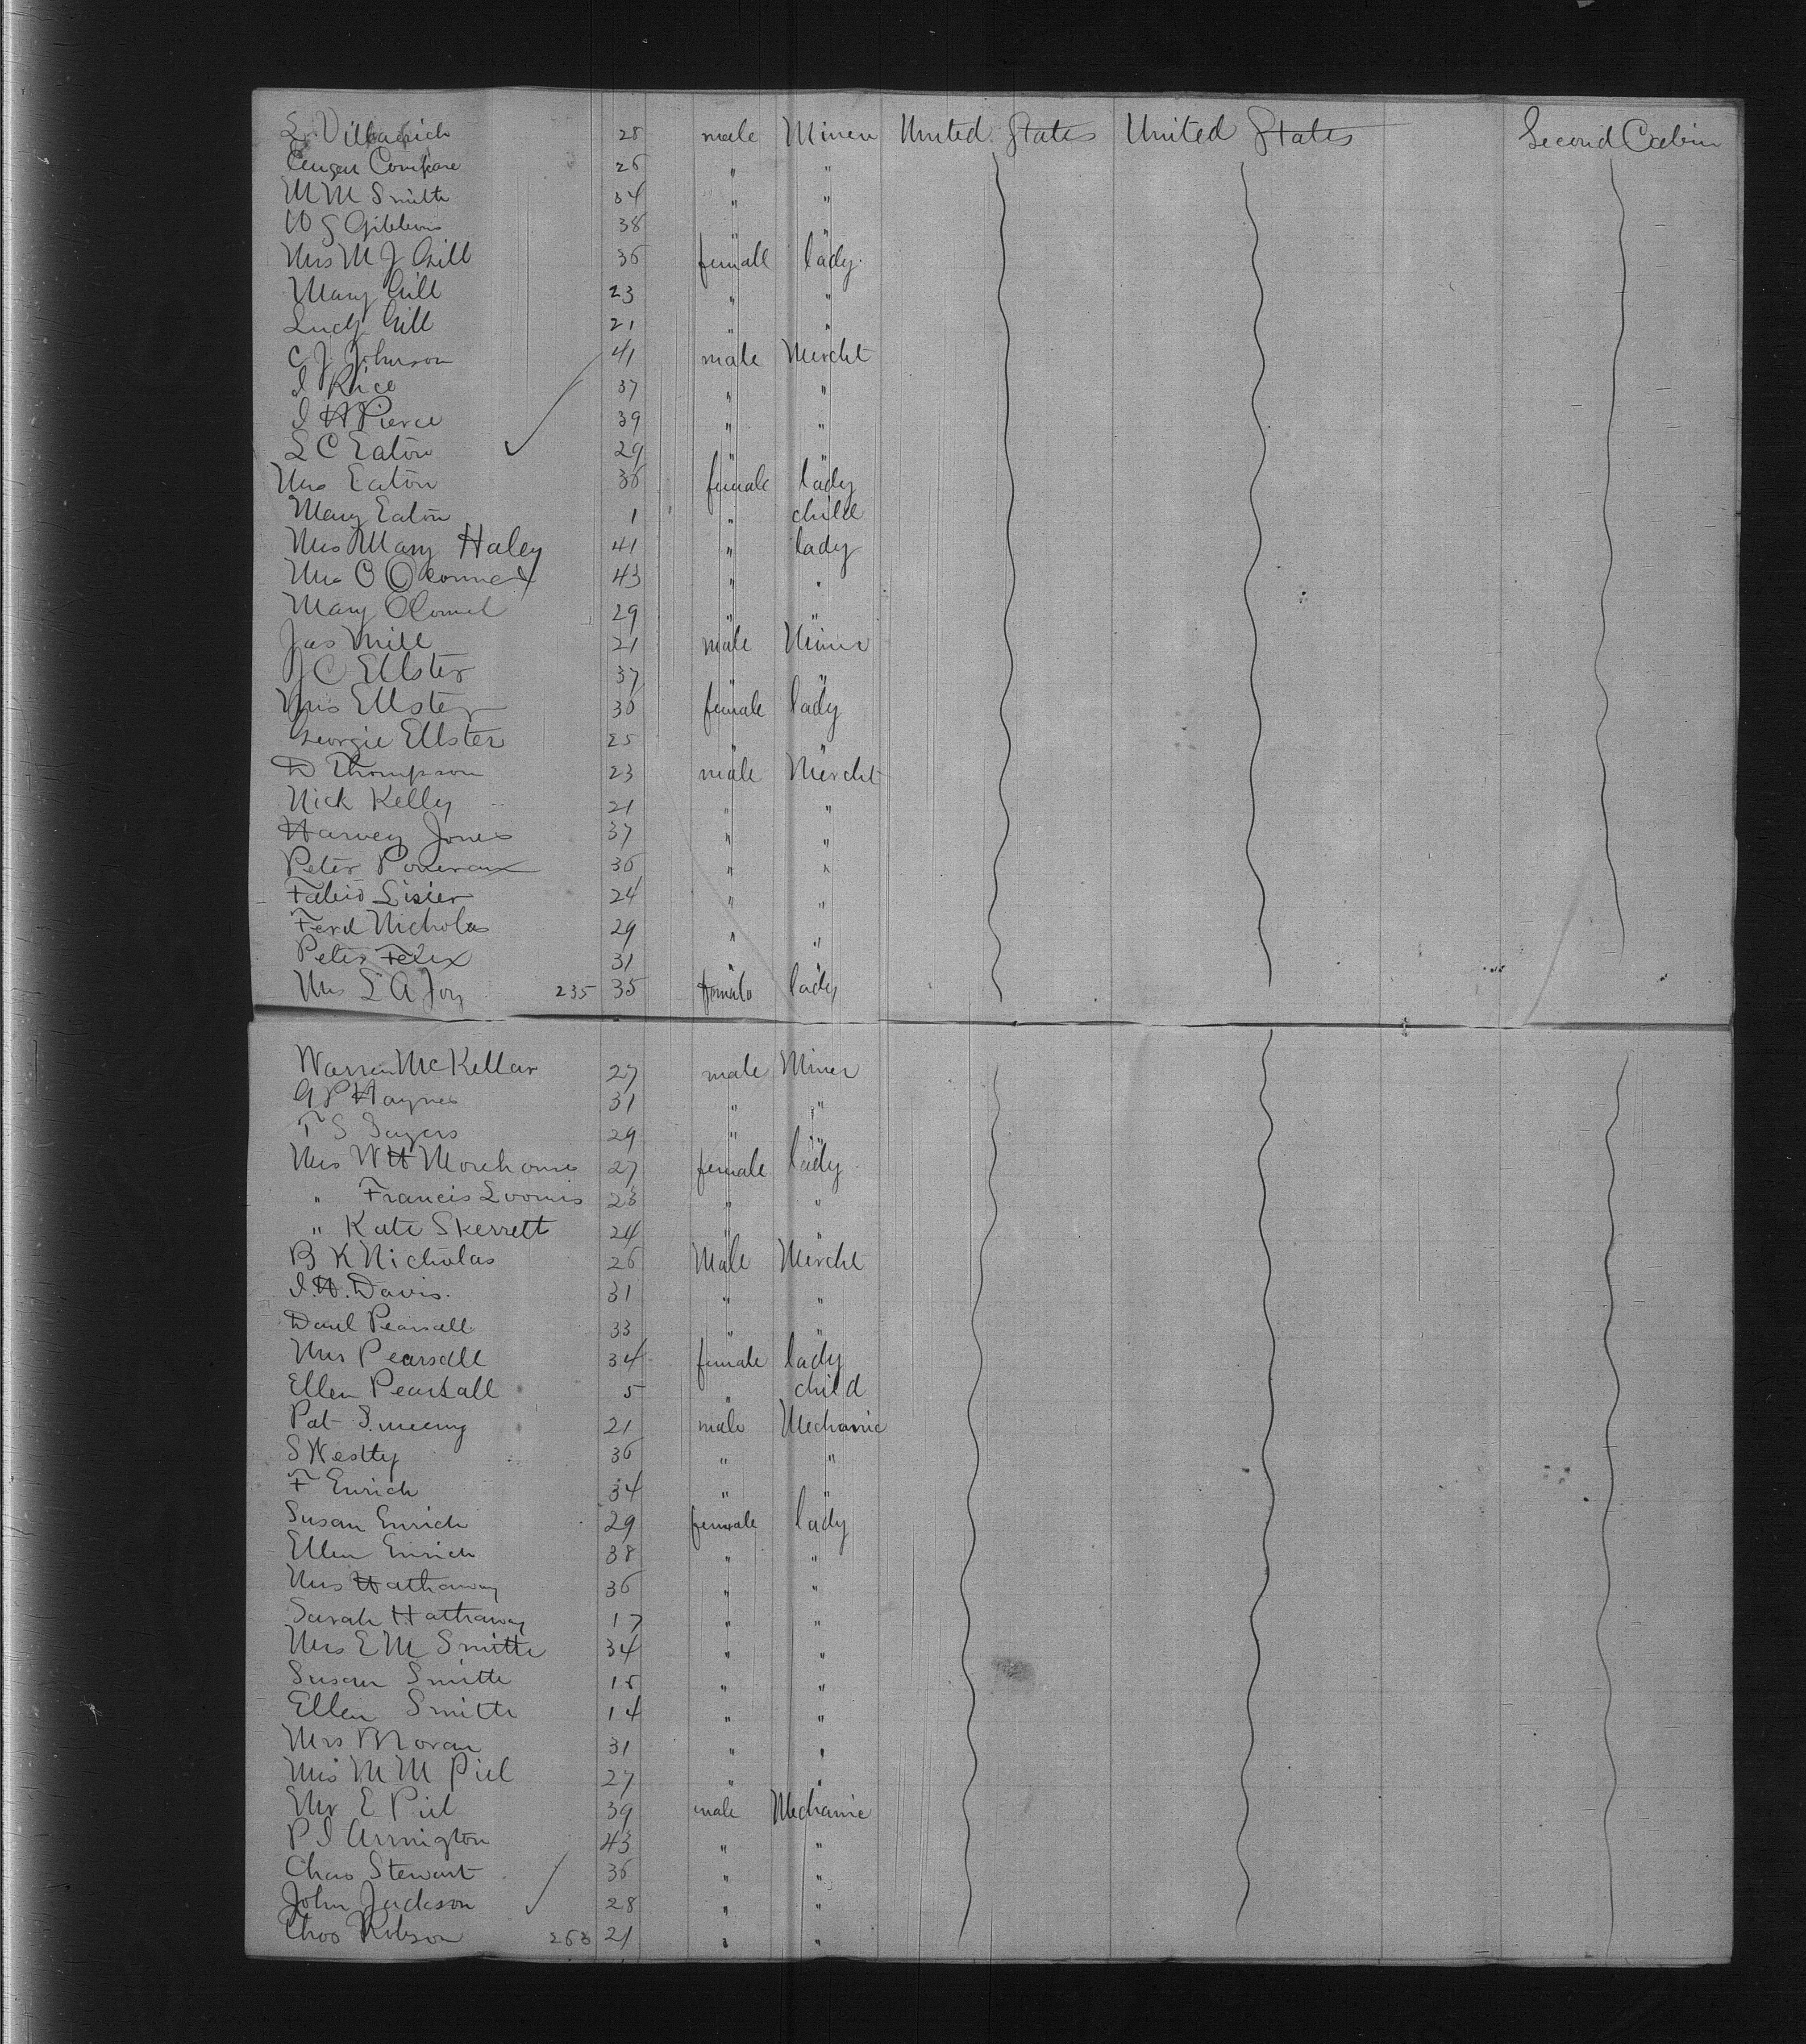 L. Villarich 28 male Miner United States United States Second Cabin
Compare 26 " "
M M Smith 34 " "
W S Gibbons 38 " "
Mrs M J Gill 36 female lady
Mary Gill 23 " "
Lucy Gill 21 " "
C J Johnson 41 male Mercht
I Rice 37 " "
I H Pierce 39 " "
L C Eaton 29 " "
Mrs Eaton 36 female lady
Mary Eaton 1 " child
Mrs Mary Haley 41 " lady
Mrs O Oconnel 43 " "
Mary OConnel 29 " "
Jas Mill 21 male Miner
J C Ellster 37 " "
Mrs Ellster 36 female lady
Georgie Ellster 25 " "
D Thompson 23 male Mercht
Nick Kelly 21 " "
Harvey Jones 37 " "
Peter 36 " "
Fabio Lisier 24 " "
Ferd Nicholas 29 " "
Peter Felix 31 " "
Mrs L A Joy 235 35 female lady
Warren McKellar 27 male Miner
G P Haynes 31 " "
T S Sayers 29 " "
Mrs W H Morehouse 27 female lady
" Francis Loomis 23 " "
" Kate Skerrett 24 " "
B K Nicholas 26 Male Mercht
I. H. Davis. 31 " "
Danl Pearsall 33 " "
Mrs Pearsall 34 female lady
Ellen Pearsall 5 " child
Pat Sweeny 21 male Mechanic
S Westly 36 " "
F Enrich 34 " "
Susan Enrich 29 female lady
Ellen Enrich 38 " "
Mrs Hathaway 36 " "
Sarah Hathaway 17 " "
Mrs E M Smith 34 " "
Susan Smith 15 " "
Ellen Smith 14 " "
Mrs Moran 31 " "
Mrs M M Piel 27 " "
Mr E Piel 39 male Mechanic
P I Arrington 43 " "
Chas Stewart 36 " "
John Jackson 28 " "
Chas Robson 263 21 " "